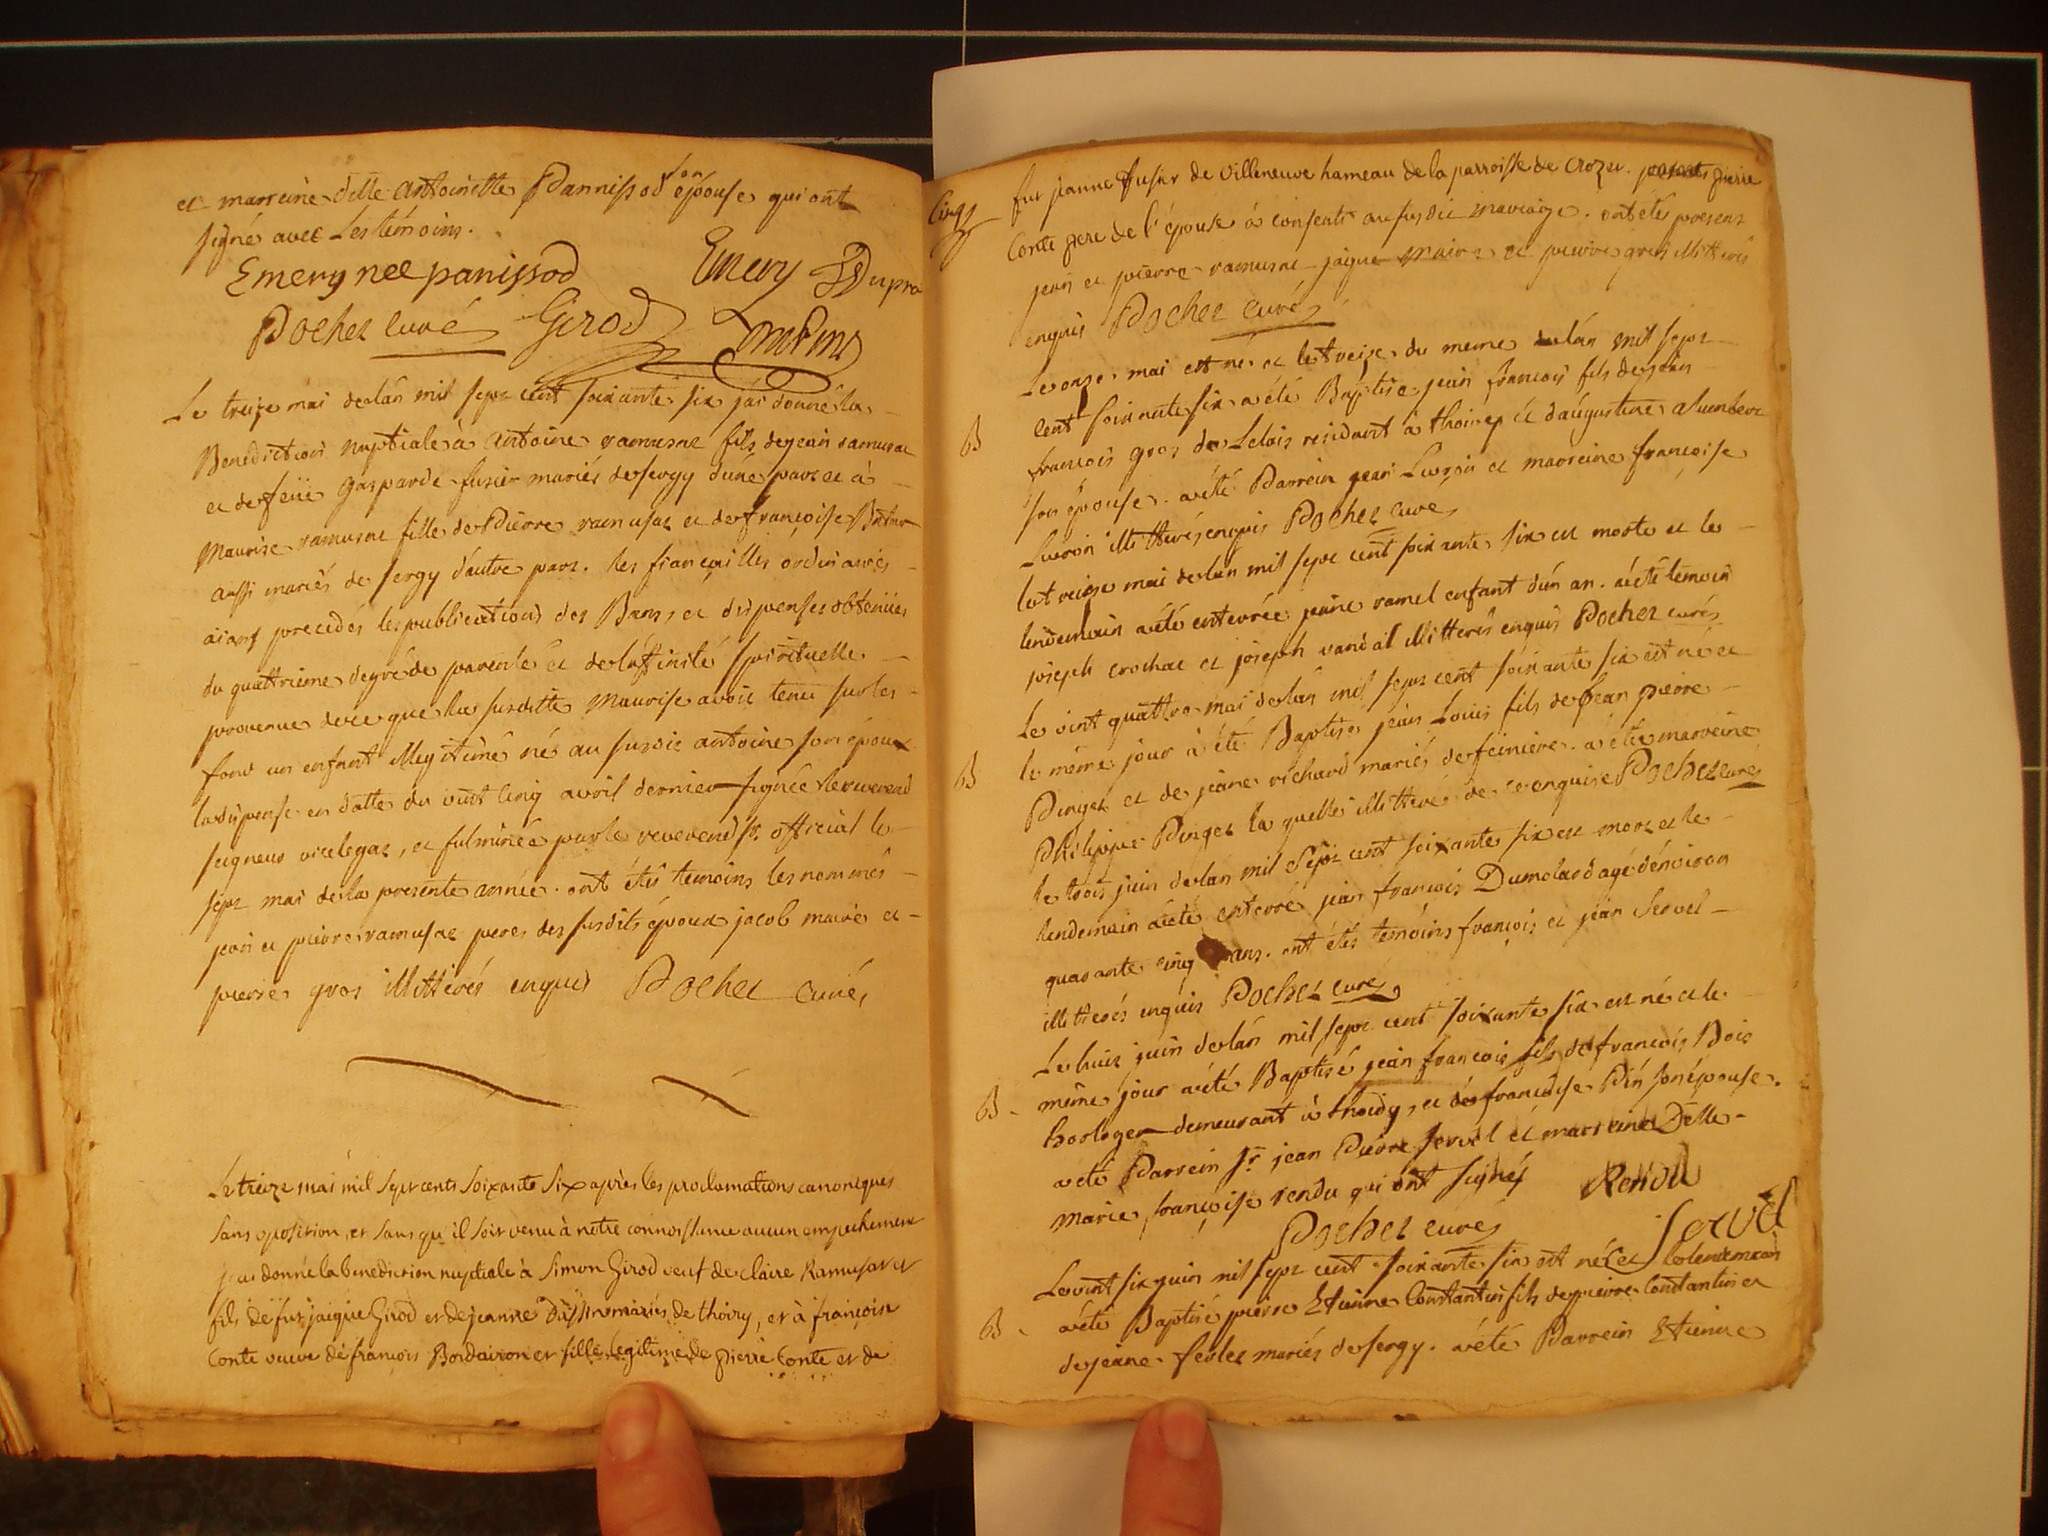 et marreine delle antoinette Pannissod son épouse qui ont
signé avec les témoins.
Emery nee panissod Emery Dupra
Pochet curé Girod
Le treize mai de lán mil sept cent soixante six j'ai donné la
Benediction nuptiale à antoine ramusat fils de jean ramusat
et de feüe gasparde fusier mariés de sergy dúne part et à
Maurise ramusat fille de Pierre ramusat et de françoise
aussi mariés de sergy dáutre part. les fiançailles ordinaires
aiant precedés les publications des Bans, et dispenses obtenües
du quattrieme degré de parenté et de láffinité spirituelle
provenue de ce que la susditte Maurise avoit tenu sur les
fons un enfant illegitime né au susdit antoine son époux
la dispense en datte du vint cinq avril dernier signée le reverend
seigneur vicelegat, et fulminée par le reverend sr. official le
sept mai de la presente année. ont étés temoins les nommés
jean et pierre ramusat peres des susdits époux jacob maire et
pierre gros illitterés enquis Pochet curé
Le treize mai mil sept cents soixante six après les proclamations canoniques
sans oposition, et sans qu'il soit venu à notre connoissance aucun empechement
j'ai donné la benediction nuptiale à Simon Girod veuf de claire Ramusat et
fils de fut jaique Girod et de jeanne mariés de thoiry, et à françoise
Conte veuve de françois Bordairon et fille legitime de pierre Conte et de
fut jeanne fusier de villeneuve hameau de la parroisse de crozet. pierre
Conte pere de l'épouse a consenti au susdit mariage. ont étés presens
jean et pierre ramusat jaique maire et pierre gros illitterés
enquis Pochet curé
Le onze mai est né et le treize du meme de lán mil sept
B cent soixante six a été Baptisé jean françois fils de jean
françois gros de Lelais residant à thoirey et dáugustine
son épouse. a été Parrein jean Luvrin et marreine françoise
Luvrin illitterés enquis Pochet curé
le treise mai de lan mil sept cent soixante six est morte et le
lendemain a été enterrée jeane ramel enfant dún an. a été temoin
joseph crochat et joseph vandal illitterés enquis Pochet curé
Le vint quattre mai de lán mil sept cent soixante six est né et
B le même jour a été Baptisé jean Louis fils de jean pierre
Pinget et de jeane richard mariés de feiniere. a été marreine
Philippe Pinget la quelle illitterée de ce enquise Pochet curé
le trois juin de lán mil sept cent soixante six est mort et le
lendemain a été enterré jean françois Dumolard agé dénviron
quarante cinq ans. ont étés témoins françois et jean Servel
illitterés enquis Pochet curé
Le huit juin de lán mil sept cent soixante six est né et le
B même jour a été Baptisé jean françois fils de françois Bois
horloger demeurant à thoiry, et de françoise Pin son épouse.
a été Parrein sr. jean Pierre servel et marreine Delle
Marie françoise rendu qui ont signés Rendu
Pochet curé Servel
Le vint six juin mil sept cent soixante six est né et le lendemain
B a été Baptisé pierre Etienne Constantin fils de pierre Constantin et
de jeane mariés de sergy. a été Parrein Etienne